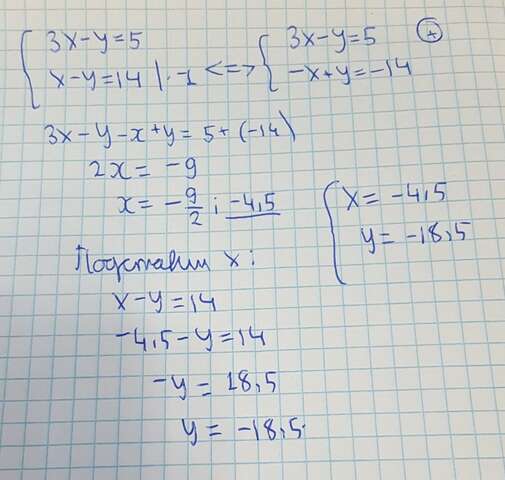 3x-y=5
x-y=14 |·-1 <=> 3x-y=5 (+)
-x+y=-14
3x-y-x+y=5+(-14)
2x=-9
x=-9/2; -4,5
x=-4,5
y=-18,5
Подставим x:
x-y=14
-4,5-y=14
-y=18,5
y=-18,5.